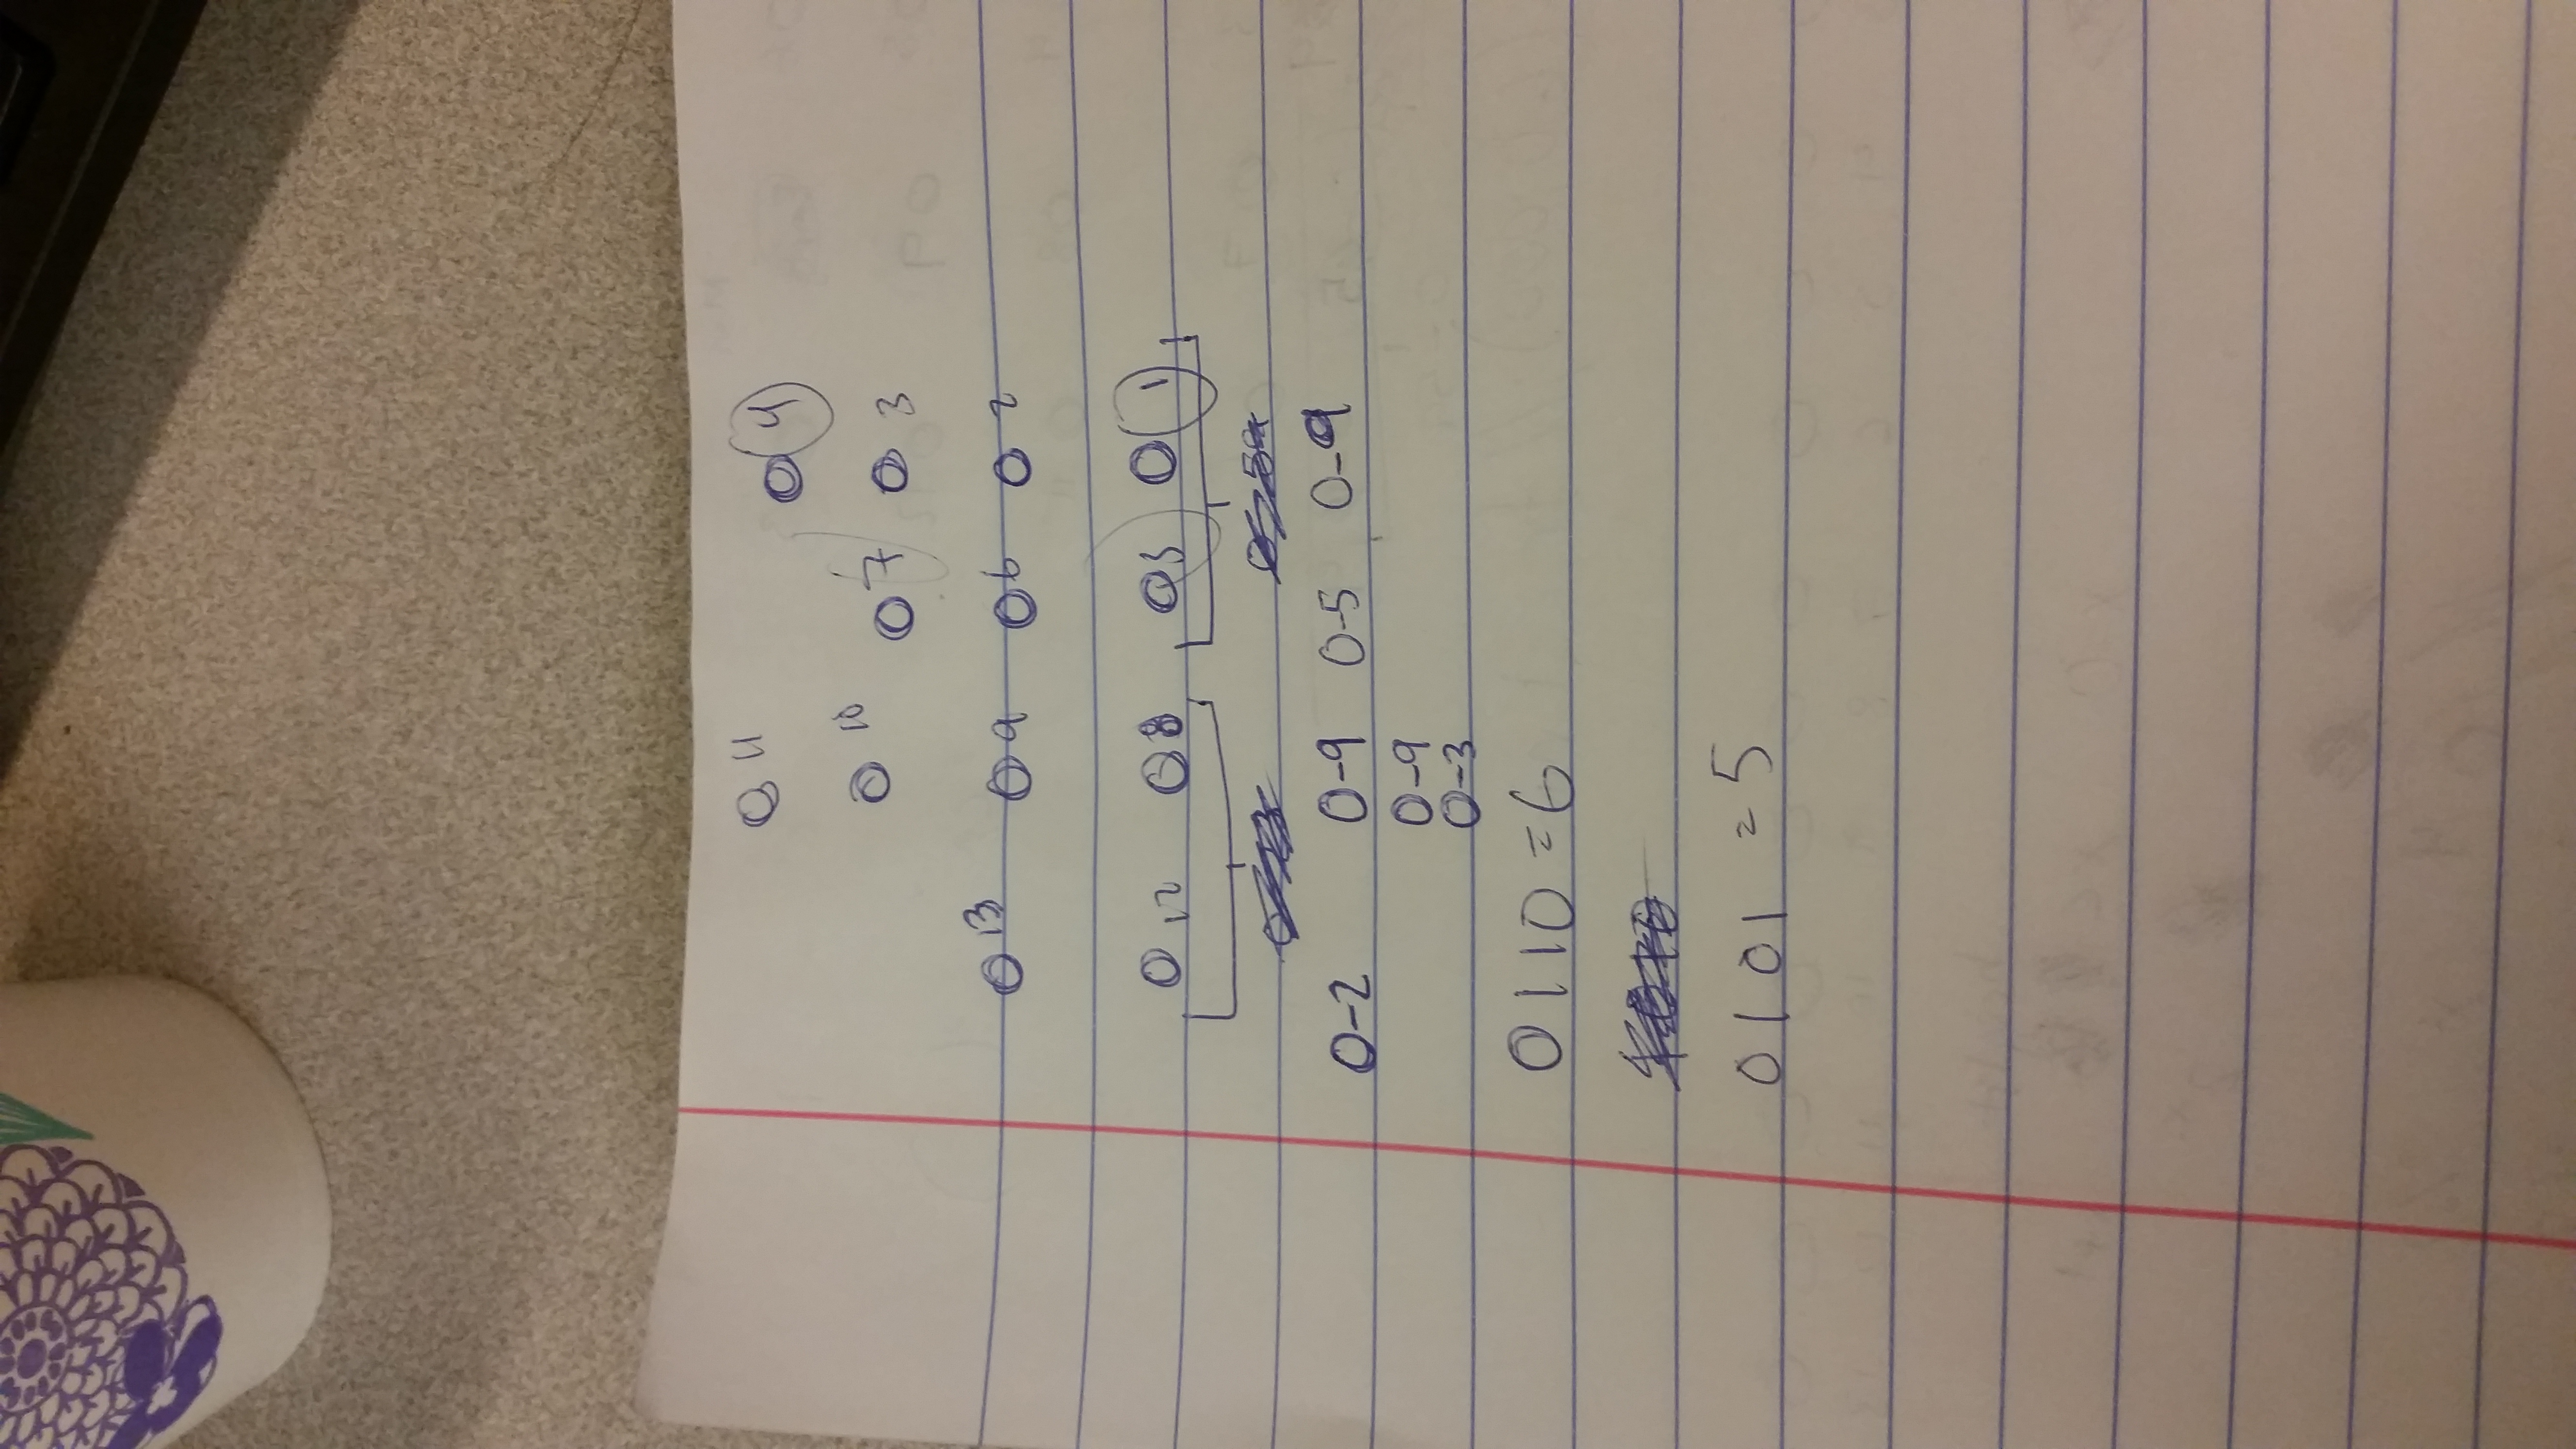 O 11 O 4
O 10 O 7 O 3
O 13 O 9 O 6 O 2
O 12 O 8 O 5 O 1
0-2 0-9 0-5 0-9
0-9
0-3
0110 = 6
0101 = 5